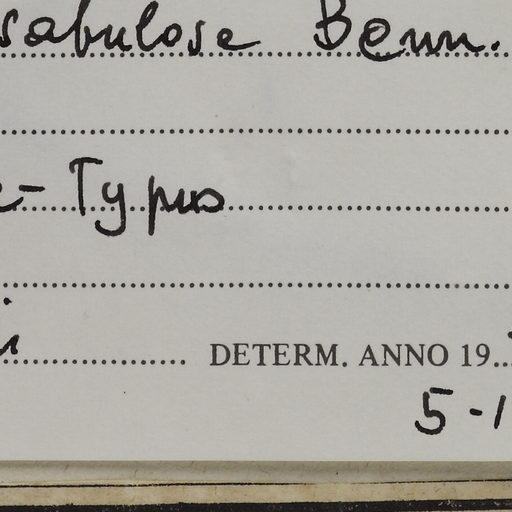 sabulosa Benn.
e-Typus
i DETERM. ANNO 19
5-1